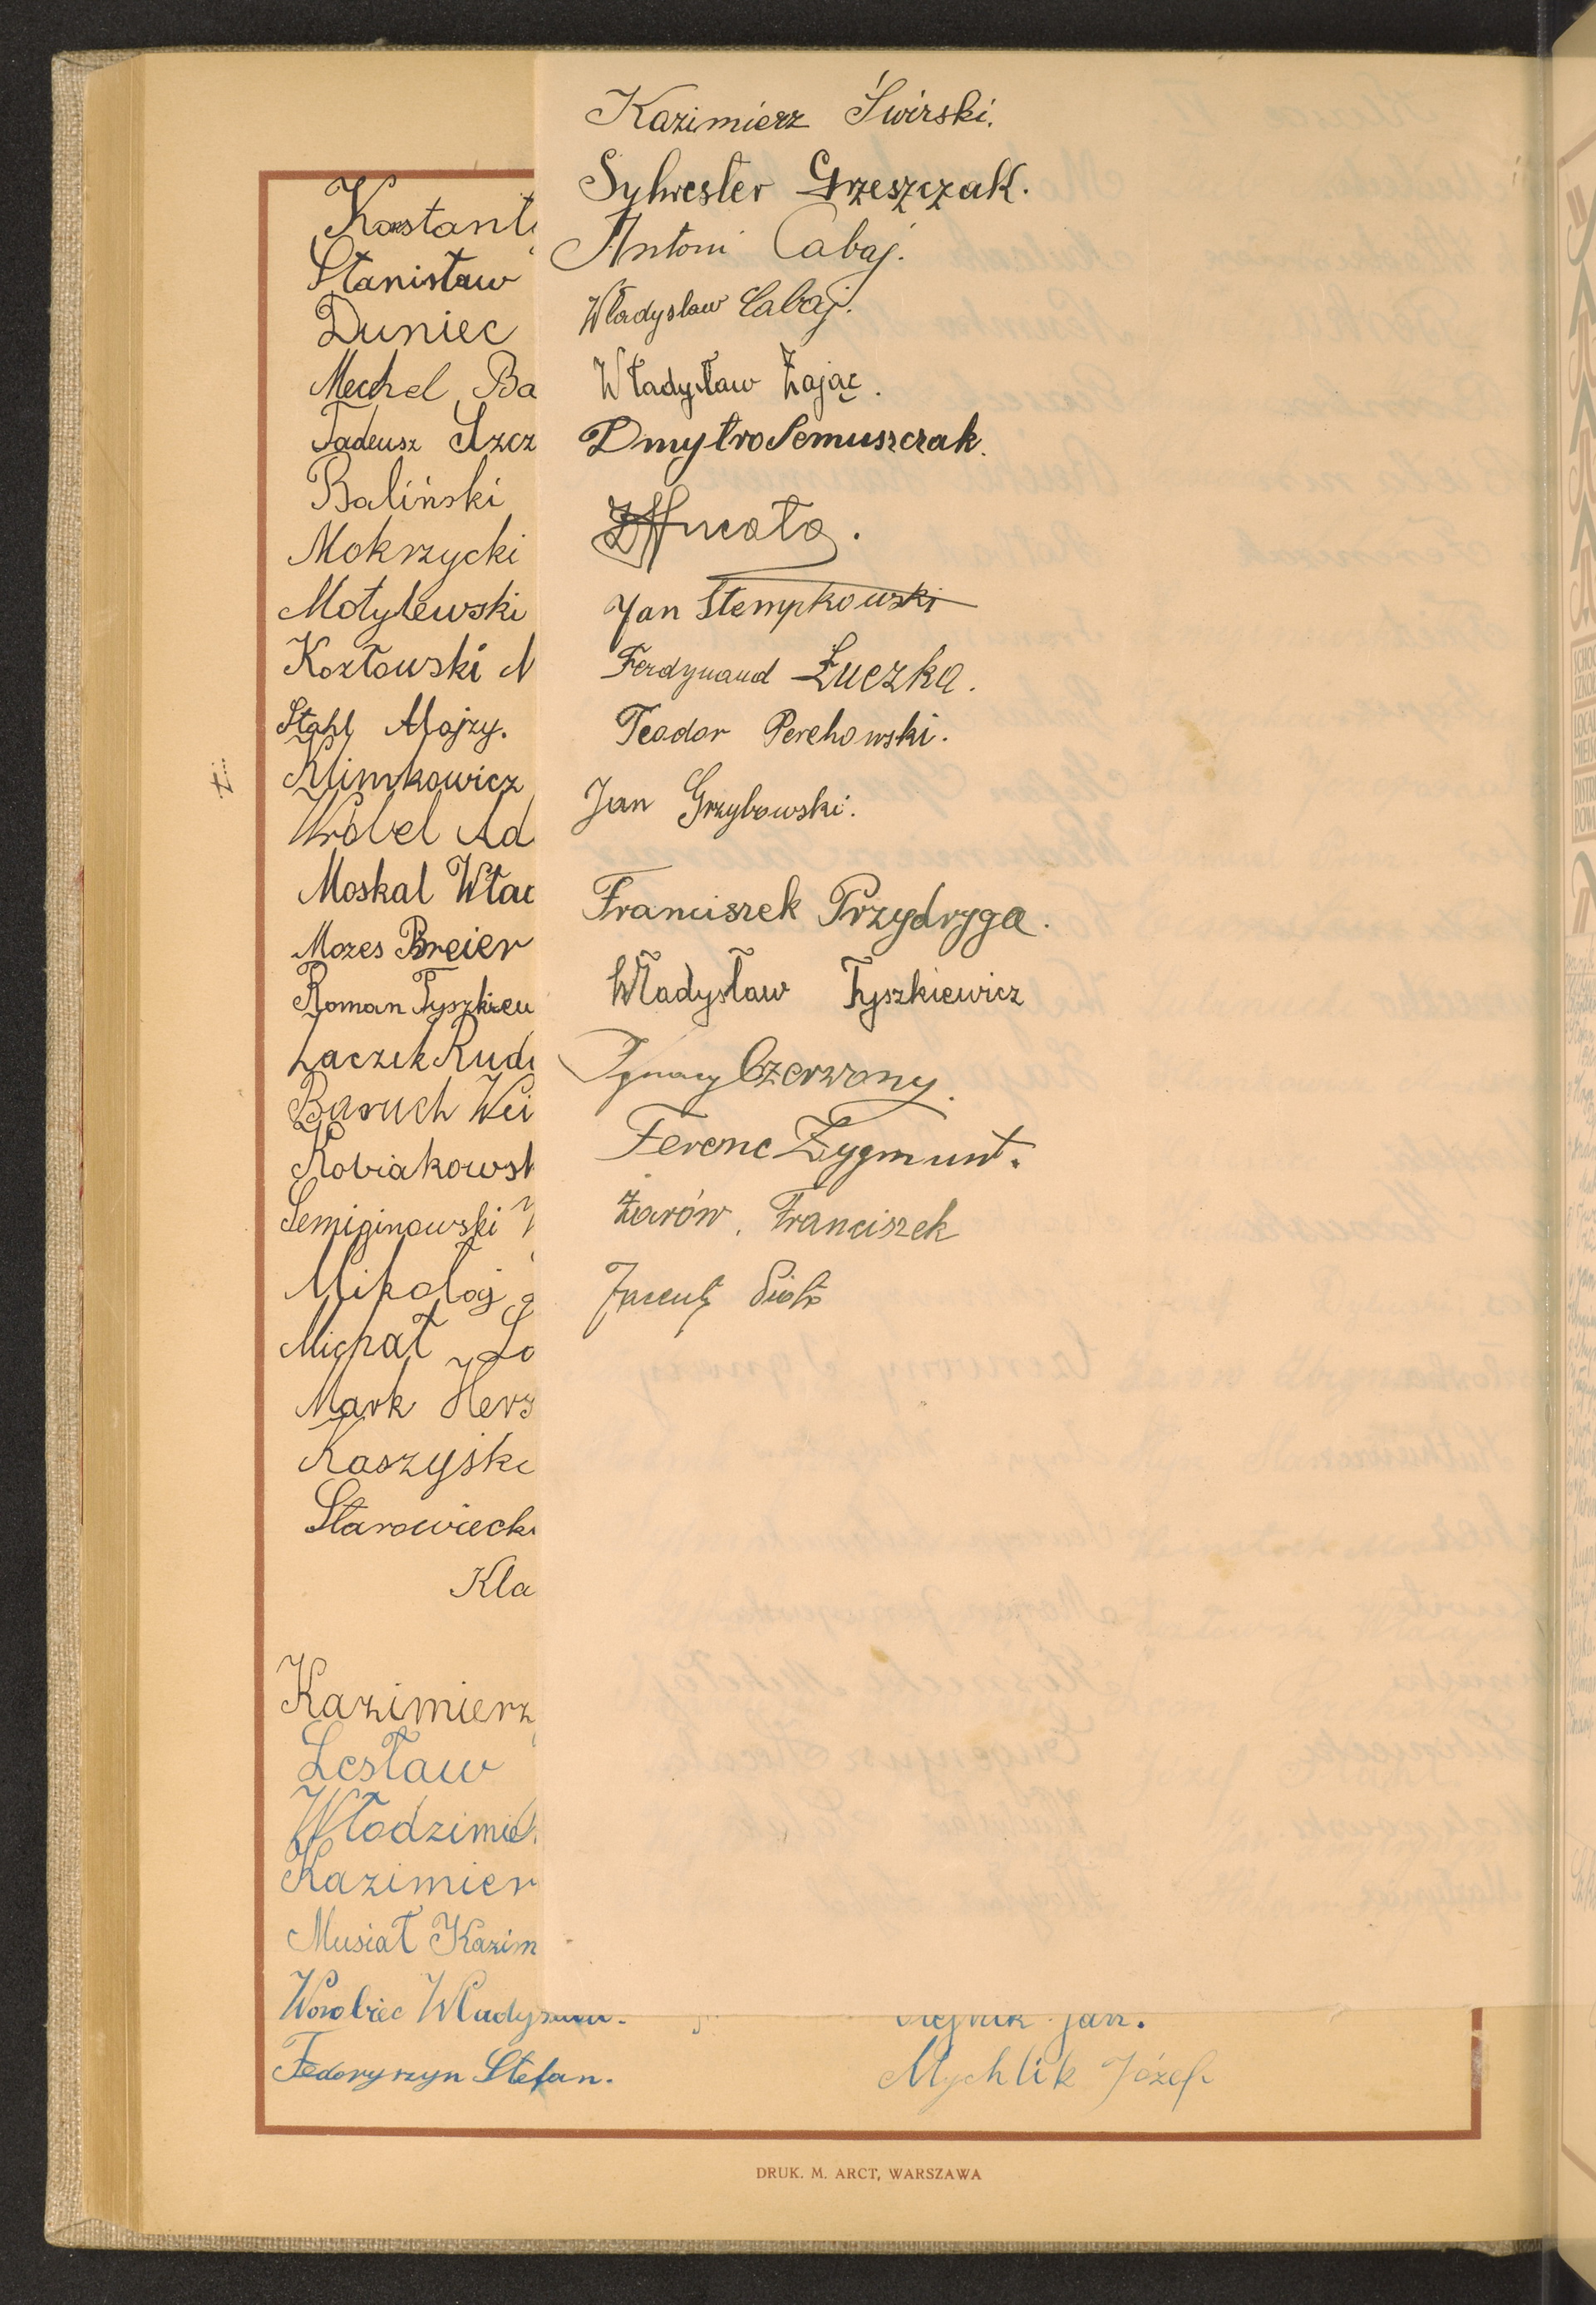 Kazimierz Świrski.
Sylwester Grzeszczak.
Antoni Cabaj.
Władysław Cabaj.
Władysław Zając.
Dmytro Semuszczak.
Jan Stempkowski
Ferdynand Łuczka.
Teodor Perehowski.
Jan Grzybowski.
Franciszek Przydryga.
Władysław Tyszkiewicz
Ignacy Czerwony.
Ferenc Zygmunt.
Żarów, Franciszek
Stanisław
Duniec
Mechel Ba
Tadeusz Szcz
Baliński
Mokrzycki
Motylewski
Kozłowski M
Stahl Mojzy.
Klimkowicz
Wróbel Ad
Moskal Wład
Mozes Breier
Roman Tyszkiew
Laczek Rudo
Baruch Wei
Kobiakowsk
Semiginowski W
Mikołaj
Michał Lo
Mark Hersz
Kaszyski
Starowiecki
Kla
Kazimierz
Lesław
Włodzimie
Kazimier
Musiał Kazim
Worobiec Władysław.
Jan.
Fedoryszyn Stefan.
Mychlik Józef
DRUK. M. ARCT, WARSZAWA